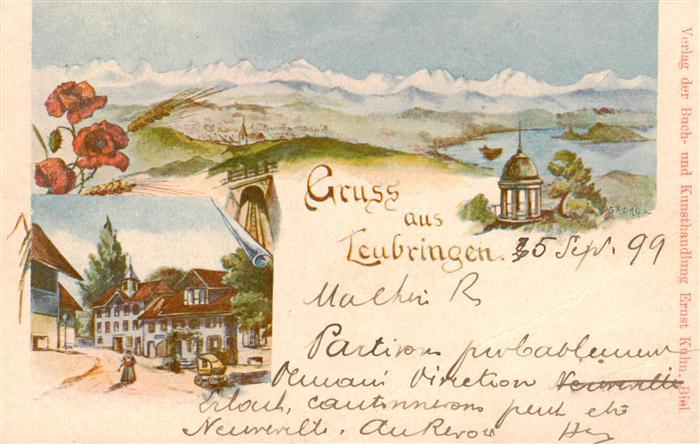 Gruss
aus
Leubringen.
25 Sept. 99
Partirons probablement
Demain Direction Neuveville
Erlach, cantonnerons peut etre
Neuveville. Au Revoir
Verlag der Buch- und Kunsthandlung Ernst Kuhn, Biel